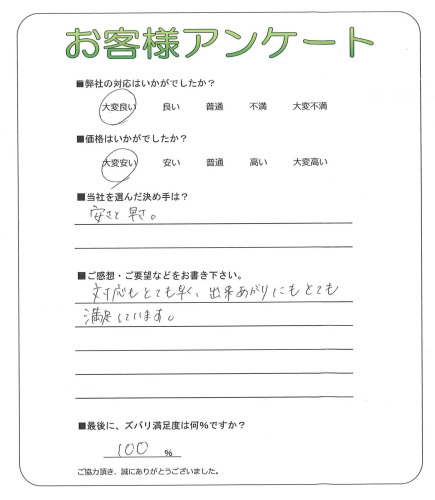 お客様アンケート
■弊社の対応はいかがでしたか？
大変良い 良い 普通 不満 大変不満
■価格はいかがでしたか？
大変安い 安い 普通 高い 大変高い
■当社を選んだ決め手は？
安さと早さ。
■ご感想・ご要望などをお書き下さい。
対応もとても早く、出来あがりにもとても
満足しています。
■最後に、ズバリ満足度は何％ですか？
100 ％
ご協力頂き、誠にありがとうございました。